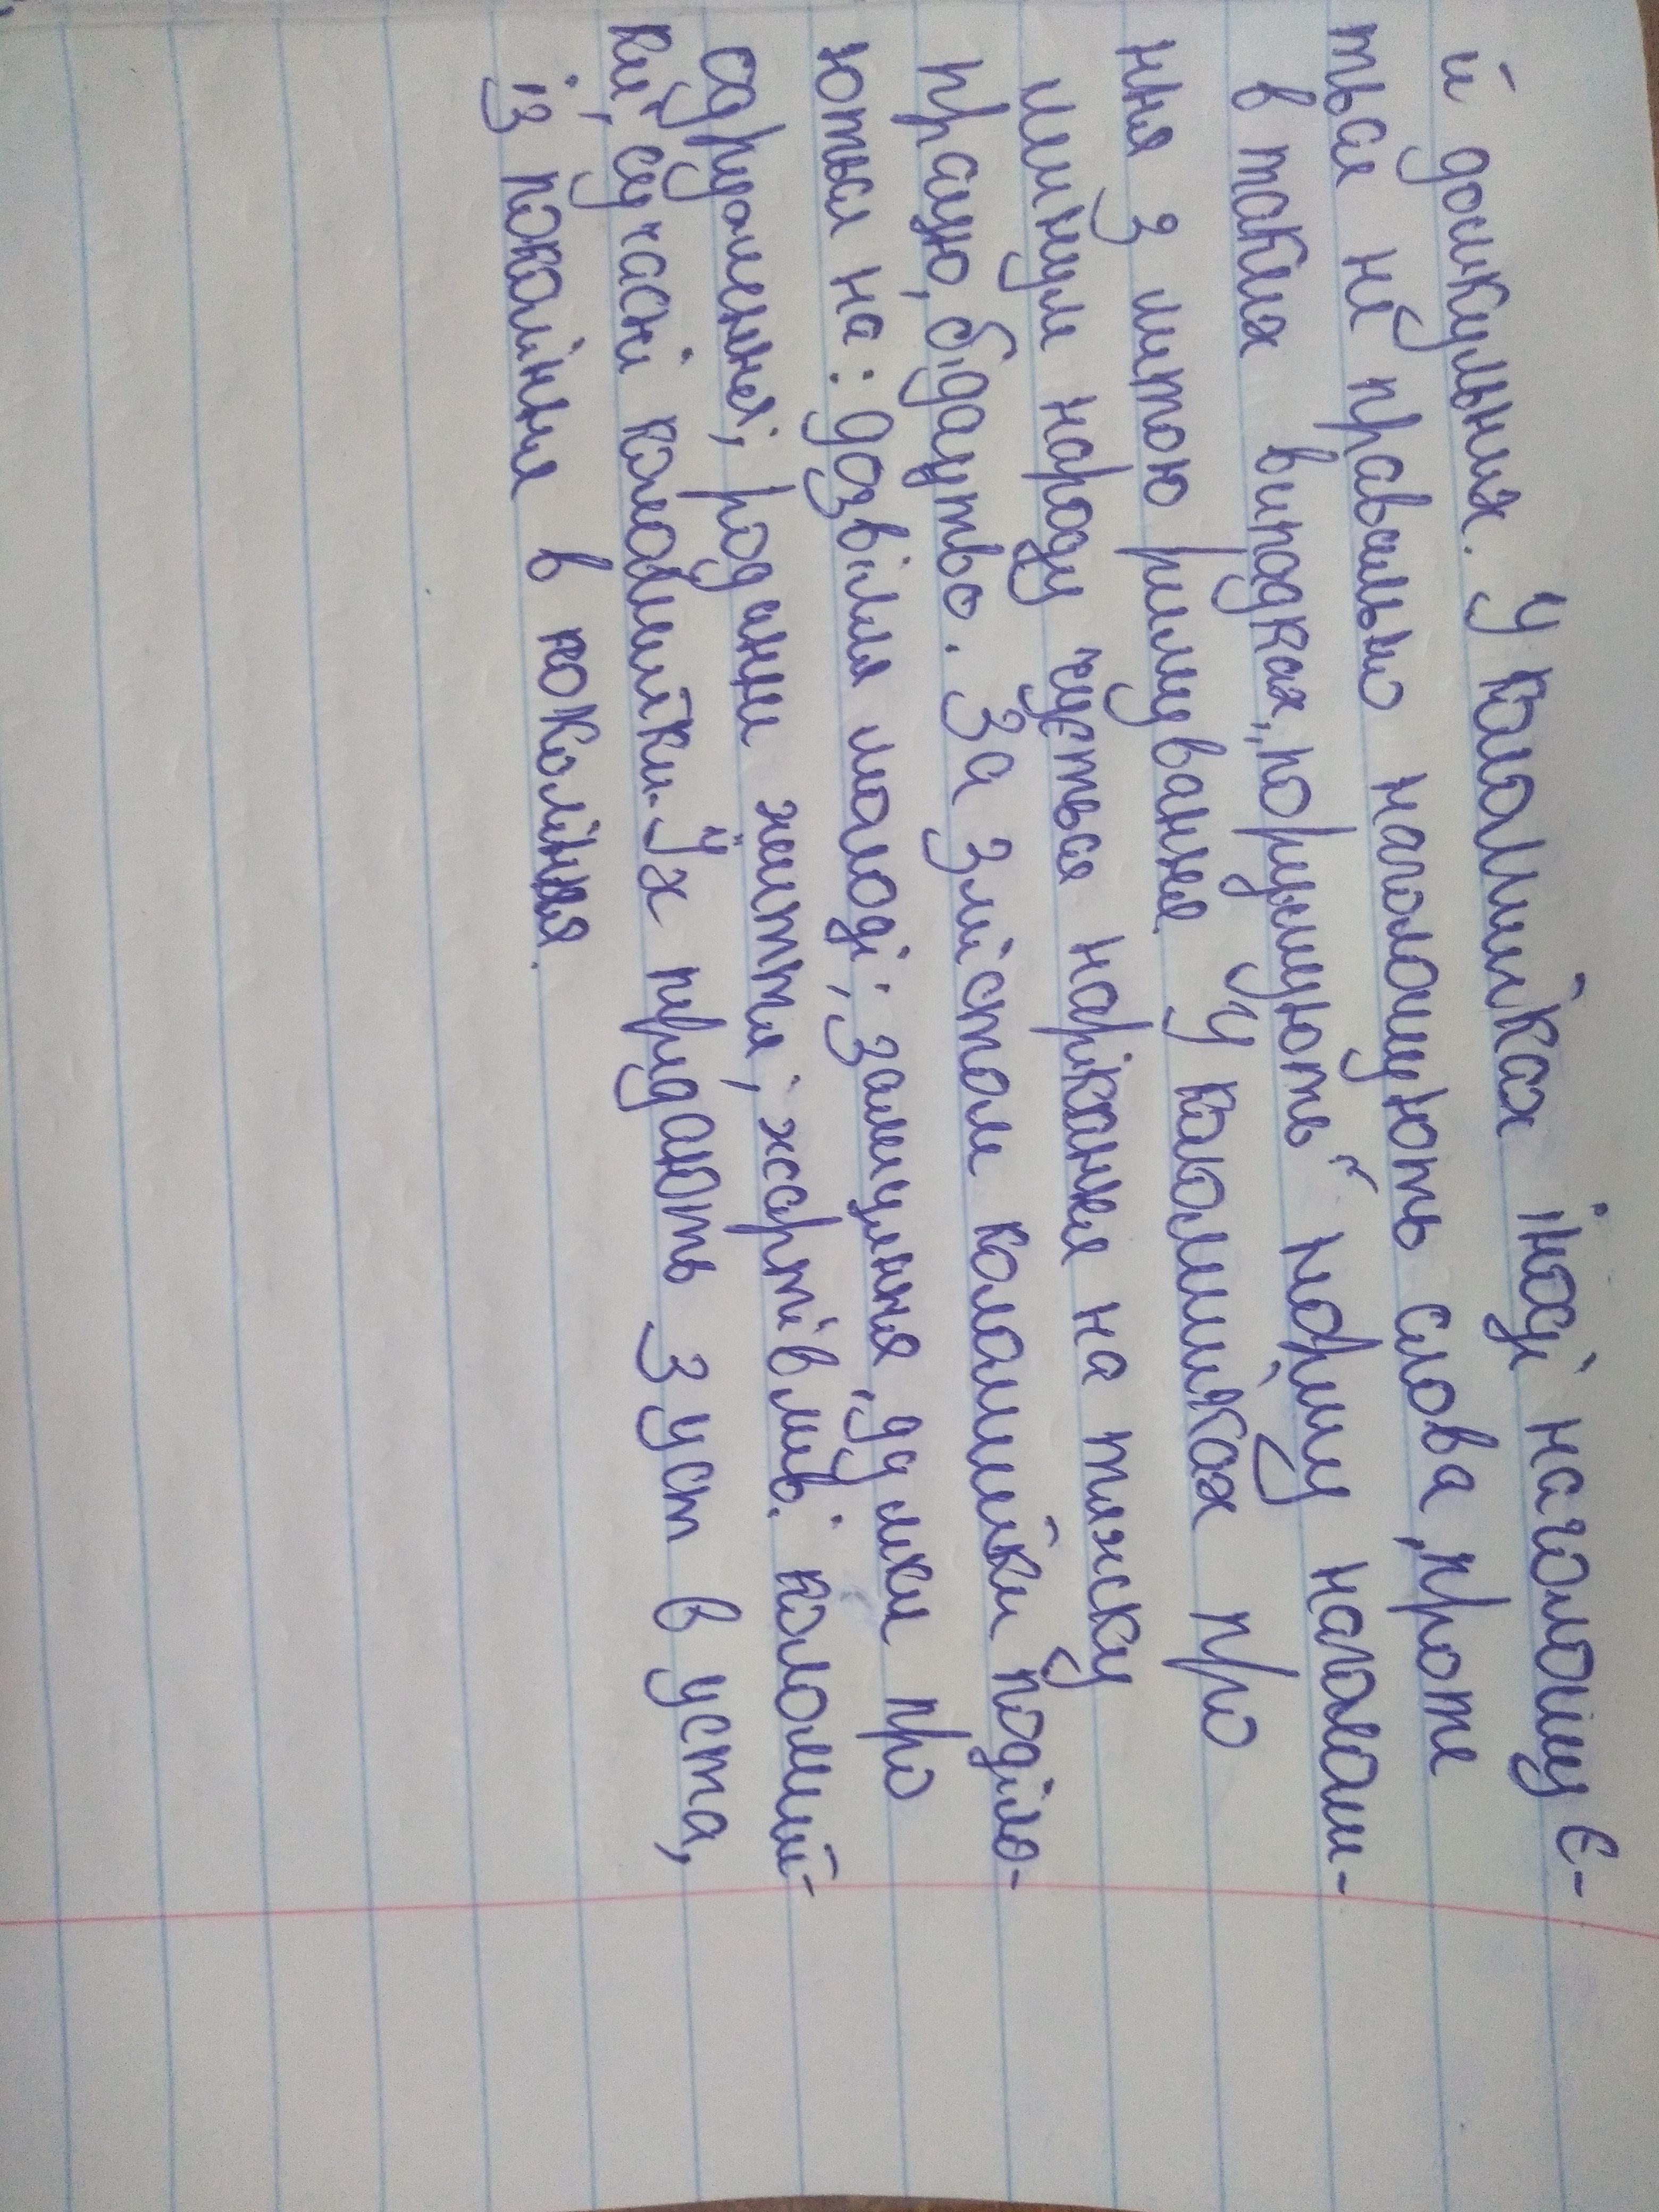 й дошкульних. У коломийках іноді наголошує-
ться не правильно наголошують слова, проте
в таких випадках „порушують" норму наголоше-
ння з метою римування. У коломийках про
минуле народу чується нарікання на тяжку
працю, бідацтво. За змістом коломийки поділя-
ються на: дозвілля молоді; залицяння, думки про
одруження; родинни життя; жартівливі коломий-
ки; сучасні коломийки. Їх придають з уст в уста,
із покоління в кокоління.